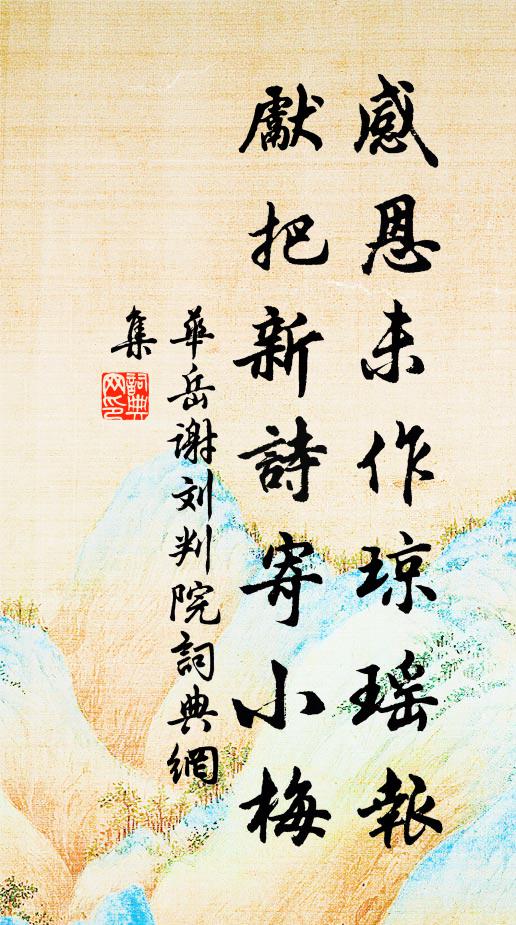 感恩未作琼瑶報
獻把新詩寄小梅
華岳谢刘判院詞典網
集
詞典网印